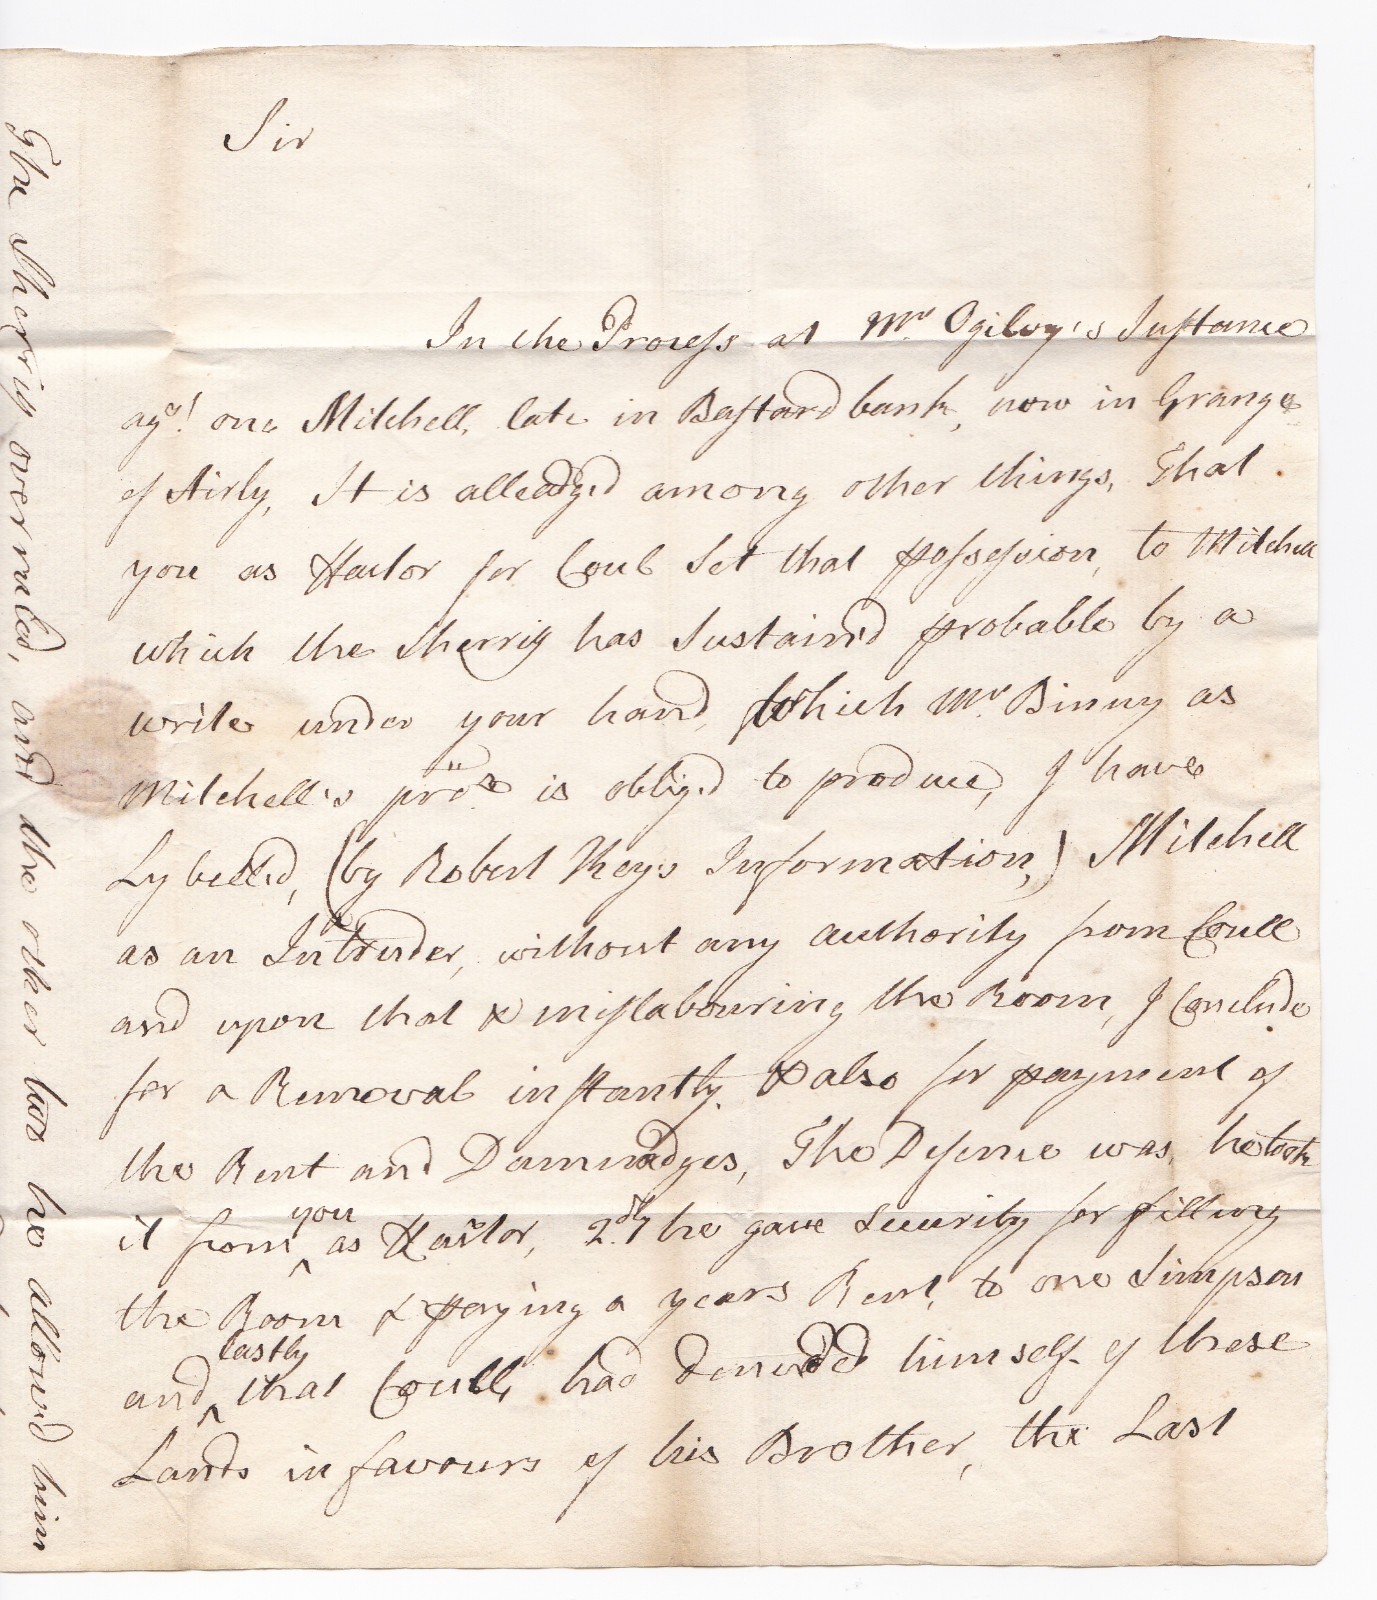 Sir
In the Process at Mr. Ogilvy's Instance
agt. one Mitchell, late in Bastardbank, now in Grange
of Airly, It is alleadged among other things, That
you as Factor for Coul Set that possession, to Mitchell
which the Sherriff has Sustain'd probable by a
write under your hand, Which Mr. Binny as
Mitchell's is oblig'd to produce, I have
Lybelled, (by Robert Keys Information,) Mitchell
as an Intruder, without any authority from Coull
and upon that & mislabouring the Room, I Conclude
for a Removal instantly. & also for payment of
the Rent and Dammadges, The Defence was, he took
it from you as Factor, 2dly he gave Security for filling
the Room & paying a years Rent, to one Simpson
and lastly that Coull, had denuded himself of these
Lands in favours of his Brother, the Last
The Sherriff overruled, and the other two he allowed him